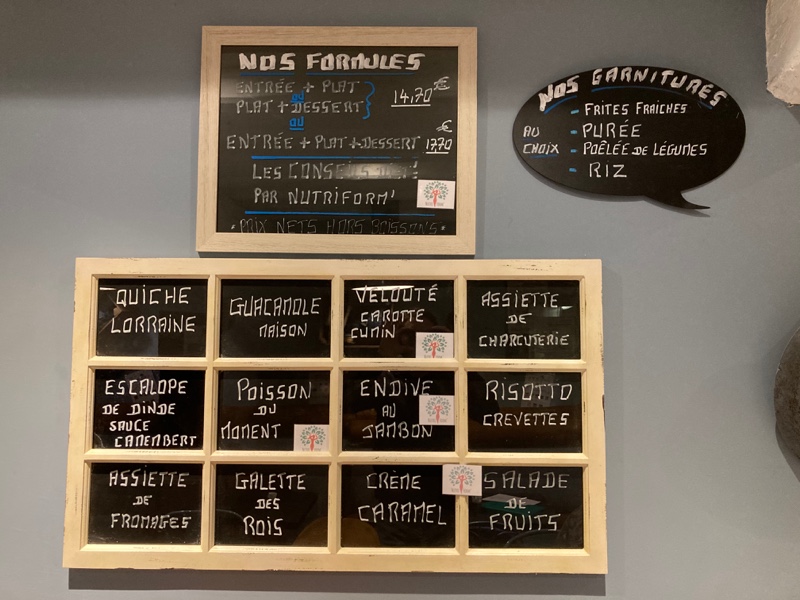 NOS FORMULES
ENTRÉE + PLAT
ou
PLAT + DESSERT
14,70 €
ou
ENTRÉE + PLAT + DESSERT 17,70 €
LES CONSEILS
PAR NUTRIFORM'
• PRIX NETS HORS BOISSONS •
NOS GARNITURES
AU CHOIX
- FRITES FRAICHES
- PURÉE
- POÊLÉE DE LÉGUMES
- RIZ
QUICHE
LORRAINE
GUACAMOLE
MAISON
VELOUTÉ
CAROTTE
CUMIN
ASSIETTE
DE
CHARCUTERIE
ESCALOPE
DE DINDE
SAUCE
CAMEMBERT
POISSON
DU
MOMENT
ENDIVE
AU
JAMBON
RISOTTO
CREVETTES
ASSIETTE
DE
FROMAGES
GALETTE
DES
ROIS
CRÈME
CARAMEL
SALADE
DE
FRUITS